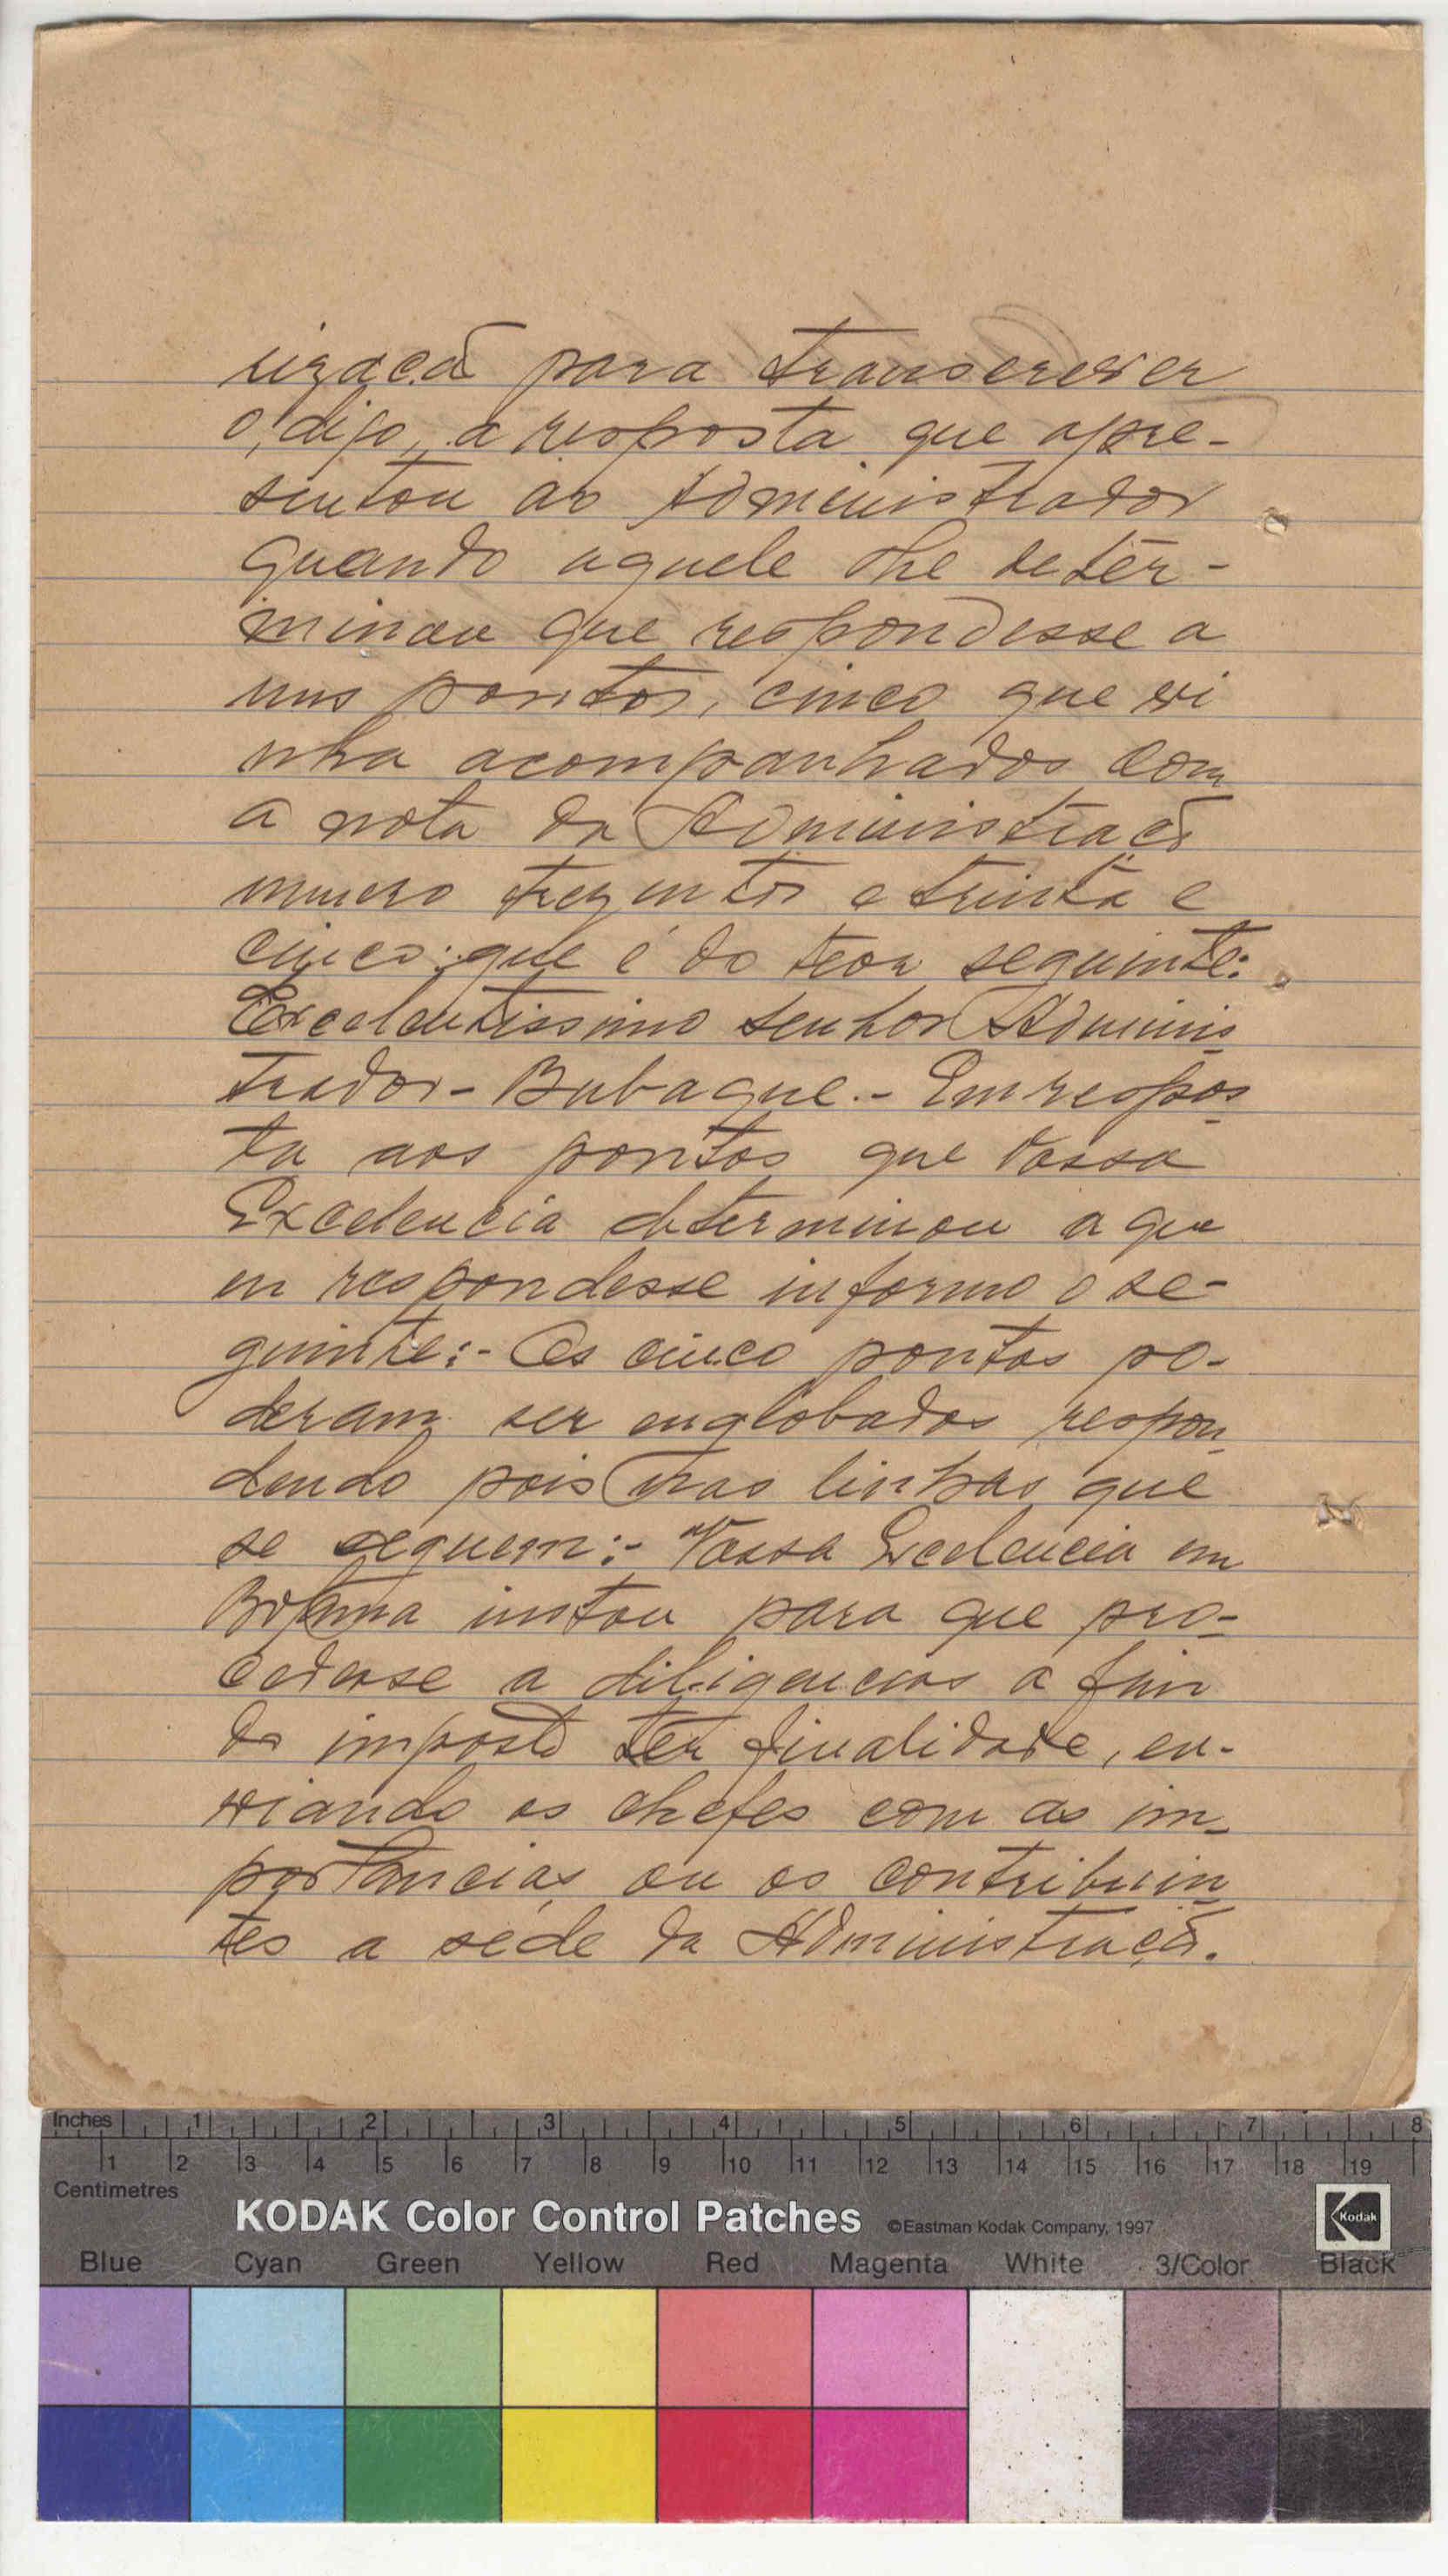 rizacã para transcrever
o, digo, a resposta que apre-
sentou ao Administrador
quando aquele lhe deter-
minou que respondesse a
uns pontos, cinco que vi
nha acompanhados com
a nota da Administracã
numero trezentos e trinta e
cinco: que é do teor seguinte:
Excelentissimo senhor Adminis
trador - Bubaque. - Em respos
ta aos pontos que Vossa
Excelencia determinou a que
eu respondesse informo o se-
guinte: - Os cinco pontos po-
deram ser englobados respon
dendo pois nas linhas que
se seguem: - Vossa Excelencia em
Bolama instou para que pro-
cedesse a diligencias a fim
do imposto ter finalidade, en-
viando os chefes com as im-
portancias ou os contribuin
tes a séde da Administraçã.
Inches 1 2 3 4 5 6 7 8
1 2 3 4 5 6 7 8 9 10 11 12 13 14 15 16 17 18 19
Centimetres
KODAK Color Control Patches ©Eastman Kodak Company, 1997 Kodak
Blue Cyan Green Yellow Red Magenta White 3/Color Black